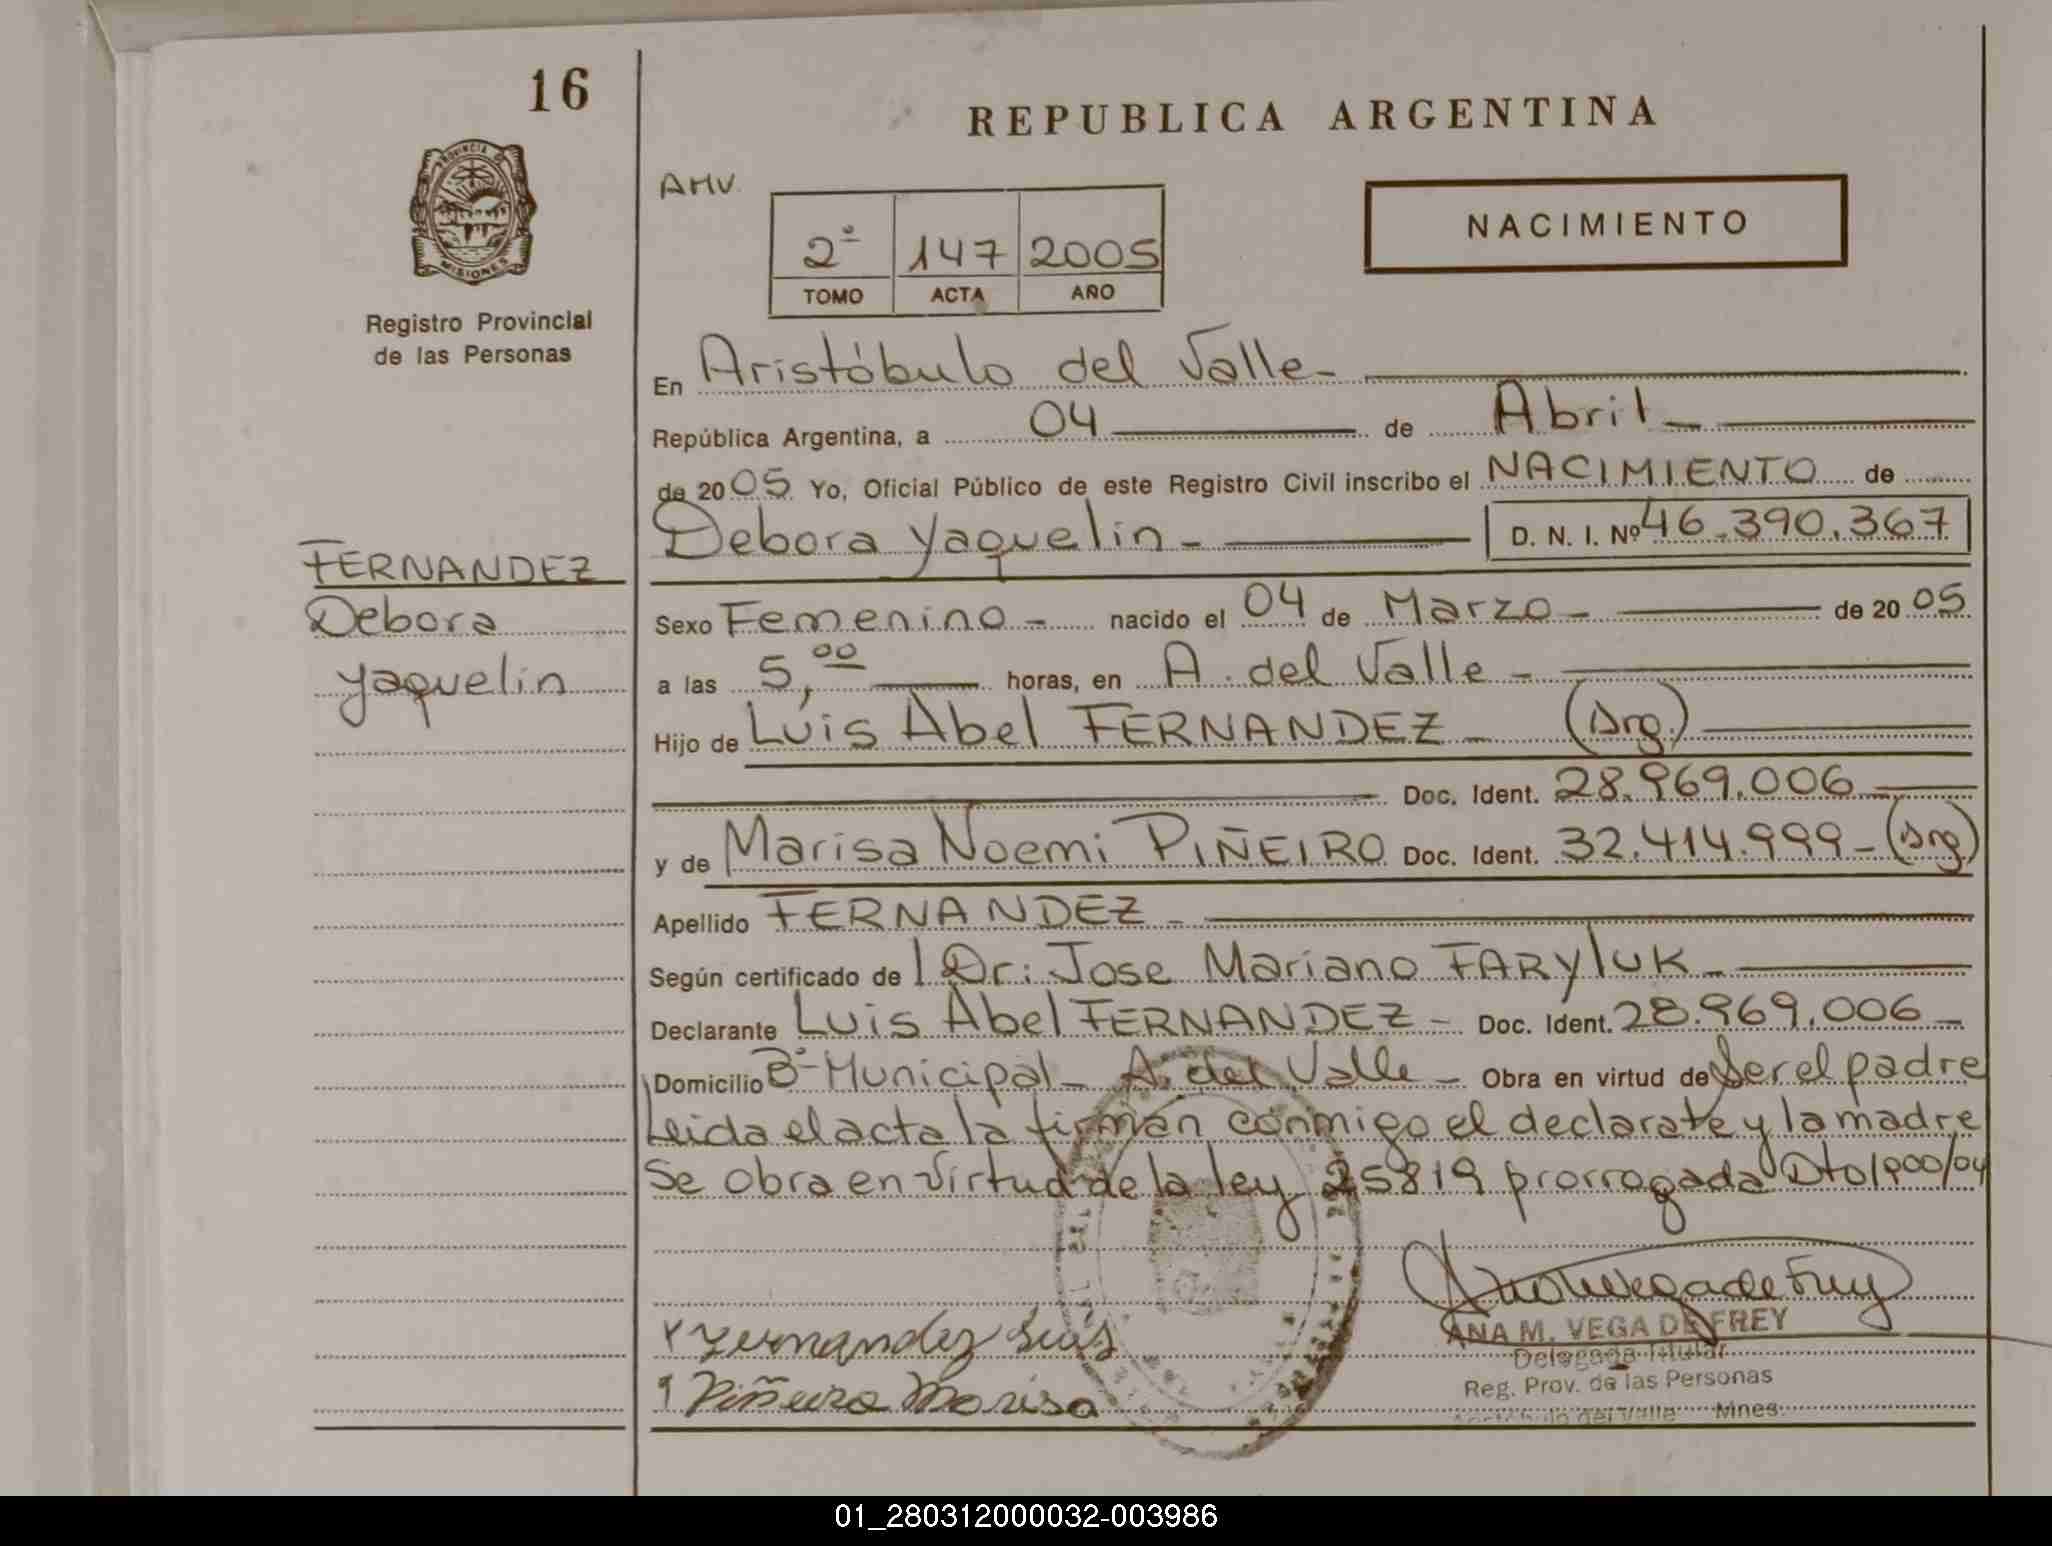 16
REPUBLICA ARGENTINA
PROVINCIA DE
MISIONES
Registro Provincial
de las Personas
AMV.
2º 147 2005
TOMO ACTA AÑO
NACIMIENTO
En Aristóbulo del Valle
República Argentina, a 04 de Abril
de 2005 Yo, Oficial Público de este Registro Civil inscribo el NACIMIENTO de
Debora Yaquelin D. N. I. Nº 46.390.367
FERNANDEZ
Debora
Yaquelin
Sexo Femenino nacido el 04 de Marzo de 2005
a las 5,00 horas, en A. del Valle
Hijo de Luis Abel FERNANDEZ (Arg.)
Doc. Ident. 28.969.006
y de Marisa Noemi PIÑEIRO Doc. Ident. 32.414.999 (Arg)
Apellido FERNANDEZ
Según certificado de l Dr: Jose Mariano FARYLUK
Declarante Luis Abel FERNANDEZ Doc. Ident. 28.969.006
Domicilio Bº Municipal A. del Valle Obra en virtud de Ser el padre
Leida el acta la firman conmigo el declarate y la madre
Se obra en virtud de la ley 25819 prorrogada Dto 1900/04
Fernandez Luis
Piñeiro Marisa
ANA M. VEGA DE FREY
Delegada Titular
Reg. Prov. de las Personas
Aristóbulo del Valle Mnes.
01_280312000032-003986